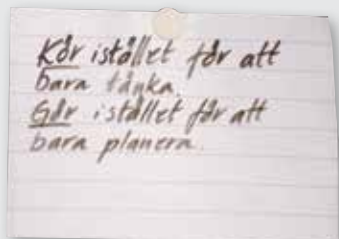 Kör istället för att
bara tänka.
Gör istället för att
bara planera.